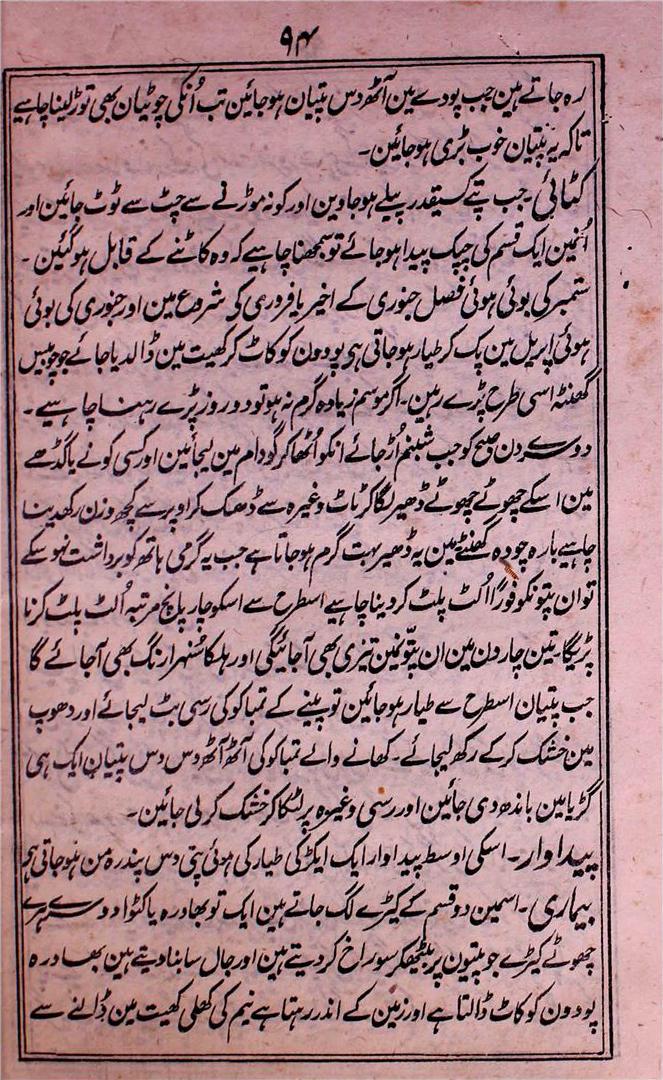 ۹۴
رہ جاتے ہین جب پودے مین آٹھ دس پتیان ہوجائین تب اُنکی چوٹیان بھی توڑ لینا چاہیے
تاکہ یہ پتیان خوب بڑی ہوجائین۔
کٹائی۔ جب پتے کسیقدر پیلے ہوجاوین اور کونہ موڑنے سے چٹ سے ٹوٹ جائین اور
اُنمین ایک قسم کی چپک پیدا ہوجائے تو سمجھنا چاہیے کہ وہ کاٹنے کے قابل ہوگئین۔
ستمبر کی بوئی ہوئی فصل جنوری کے اخیر یا فروری کی شروع مین اور جنوری کی بوئی
ہوئی اپریل مین پک کر طیار ہوجاتی ہی پودون کو کاٹ کر کھیت مین ڈالدیا جائے جو چوبیس
گھنٹہ اسی طرح پڑے رہین۔ اگر موسم زیادہ گرم نہ ہو تو دو روز پڑے رہنا چاہیے۔
دوسرے دن صبح کو جب شبنم اُڑ جائے انکو اُٹھا کر گودام مین لیجائین اور کسی کونے یا گڈھے
مین اسکے چھوٹے چھوٹے ڈھیر لگا کر ٹاٹ وغیرہ سے ڈھک کر اوپر سے کچھ وزن رکھدینا
چاہیے بارہ چودہ گھنٹے مین یہ ڈھیر بہت گرم ہوجاتا ہے جب یہ گرمی ہاتھ کو برداشت نہو سکے
تو ان پتونکو فورًا اُلٹ پلٹ کردینا چاہیے اسطرح سے اسکو چار پانچ مرتبہ اُلٹ پلٹ کرنا
پڑیگا۔ تین چار دن مین ان پتّونمین تیزی بھی آجائیگی اور ہلکا سُنہرا رنگ بھی آجائے گا
جب پتیان اسطرح سے طیار ہوجائین تو پینے کے تمباکو کی رسی بٹ لیجائے اور دھوپ
مین خشک کرکے رکھ لیجائے۔ کھانے والے تمباکو کی آٹھ آٹھ دس دس پتیان ایک ہی
گڑیا مین باندھ دی جائین اور رسی وغیرہ پر لٹکا کر خشک کرلی جائین۔
پیداوار۔ اسکی اوسط پیداوار ایک ایکڑ کی طیار کی ہوئی پتی دس پندرہ من ہوجاتی ہی
بیماری۔ اسمین دو قسم کے کیڑے لگ جاتے ہین ایک تو بھادرہ یا کٹوا دوسرے ہرے
چھوٹے کیڑے جو پتیون پر بیٹھکر سوراخ کردیتے ہین اور جال سا بنا دیتے ہین بھادرہ
پودون کو کاٹ ڈالتا ہے اور زمین کے اندر رہتا ہے نیم کی کھلی کھیت مین ڈالنے سے